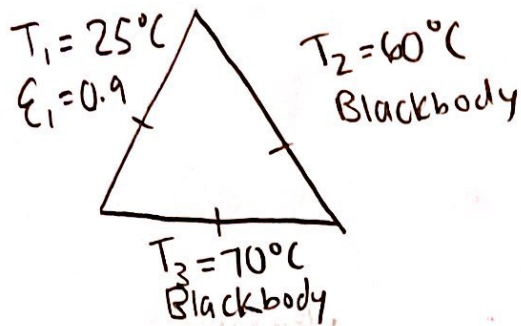 T₁ = 25°C
ε₁ = 0.9
T₂ = 60°C
Blackbody
T₃ = 70°C
Blackbody